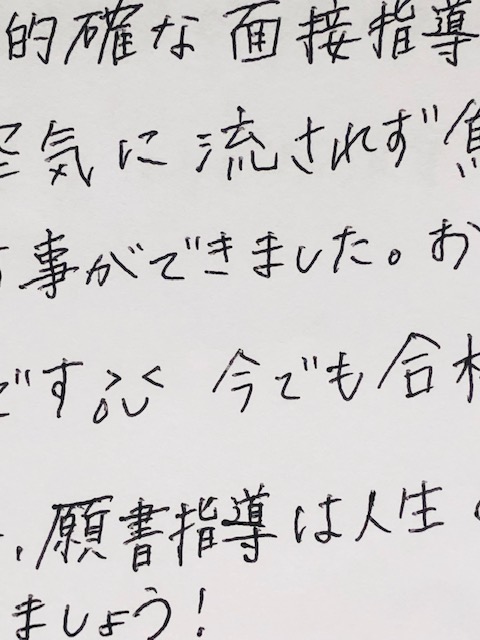 的確な面接指導
空気に流されず焦
事ができました。お
です 今でも合格
願書指導は人生
ましょう！